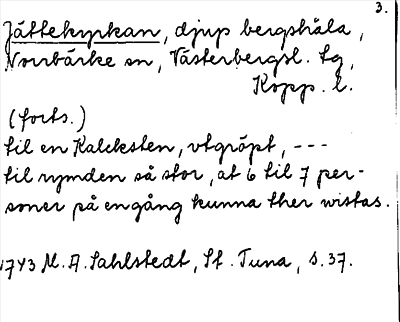 3.
Jättekyrkan, djup bergshåla,
Norrbärke sn, Västerbergsl. tg,
Kopp. l.
(forts.)
til en Kalcksten, vtgröpt, ---
til rymden så stor, at 6 til 7 per-
soner på engång kunna ther wistas.
1743 M. A. Sahlstedt, St. Tuna, s. 37.